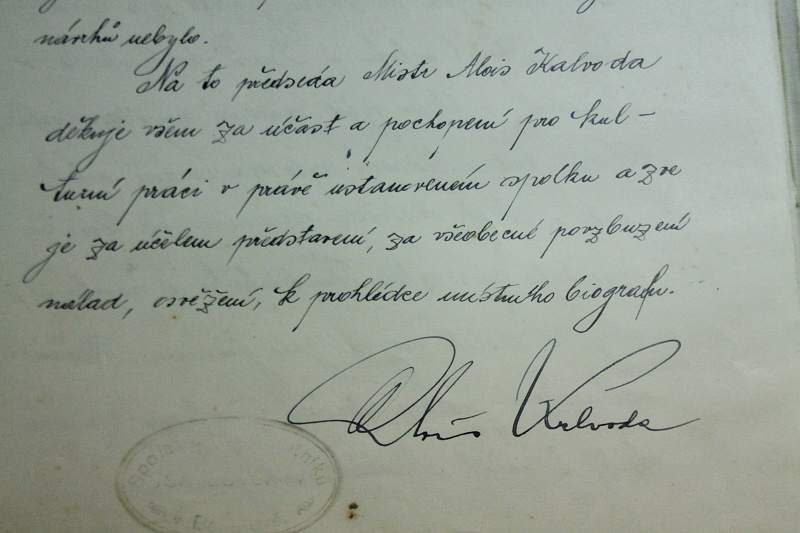 návrhů nebylo.
Na to předseda Mistr Alois Kalvoda
děkuje všem za účast a pochopení pro kul-
turní práci v právě ustanoveném spolku a zve
je za účelem představení, za všeobecné povzbuzení
nálad, osvěžení, k prohlídce místního biografu.
Alois Kalvoda